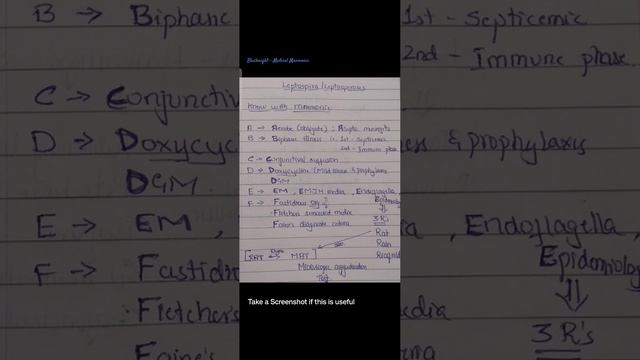 B → Biphasic
1st - Septicemic
2nd - Immune phase
C → Conjunctiv
D → Doxycyc
& prophylaxis
DGM
E → EM,
, Endoflagella,
F → Fastidio
Epidemiology
⇓
Fletcher's
edia
3 R's
Faine's
Leptospira/Leptospirosis
Know with Mnemonic
A → Aerobe (obligate) ; Aseptic meningitis
B → Biphasic illness
1st - Septicemic
2nd - Immune phase
C → Conjunctival suffusion
D → Doxycycline & prophylaxis
DGM
E → EM, EMJH media, Endoflagella,
F → Fastidious org
Epidemiology
⇓
Fletcher's semisolid media
3 R's
Faine's diagnostic criteria
Rat
Rain
MAT
Microscopic agglutination
Test
Take a Screenshot if this is useful